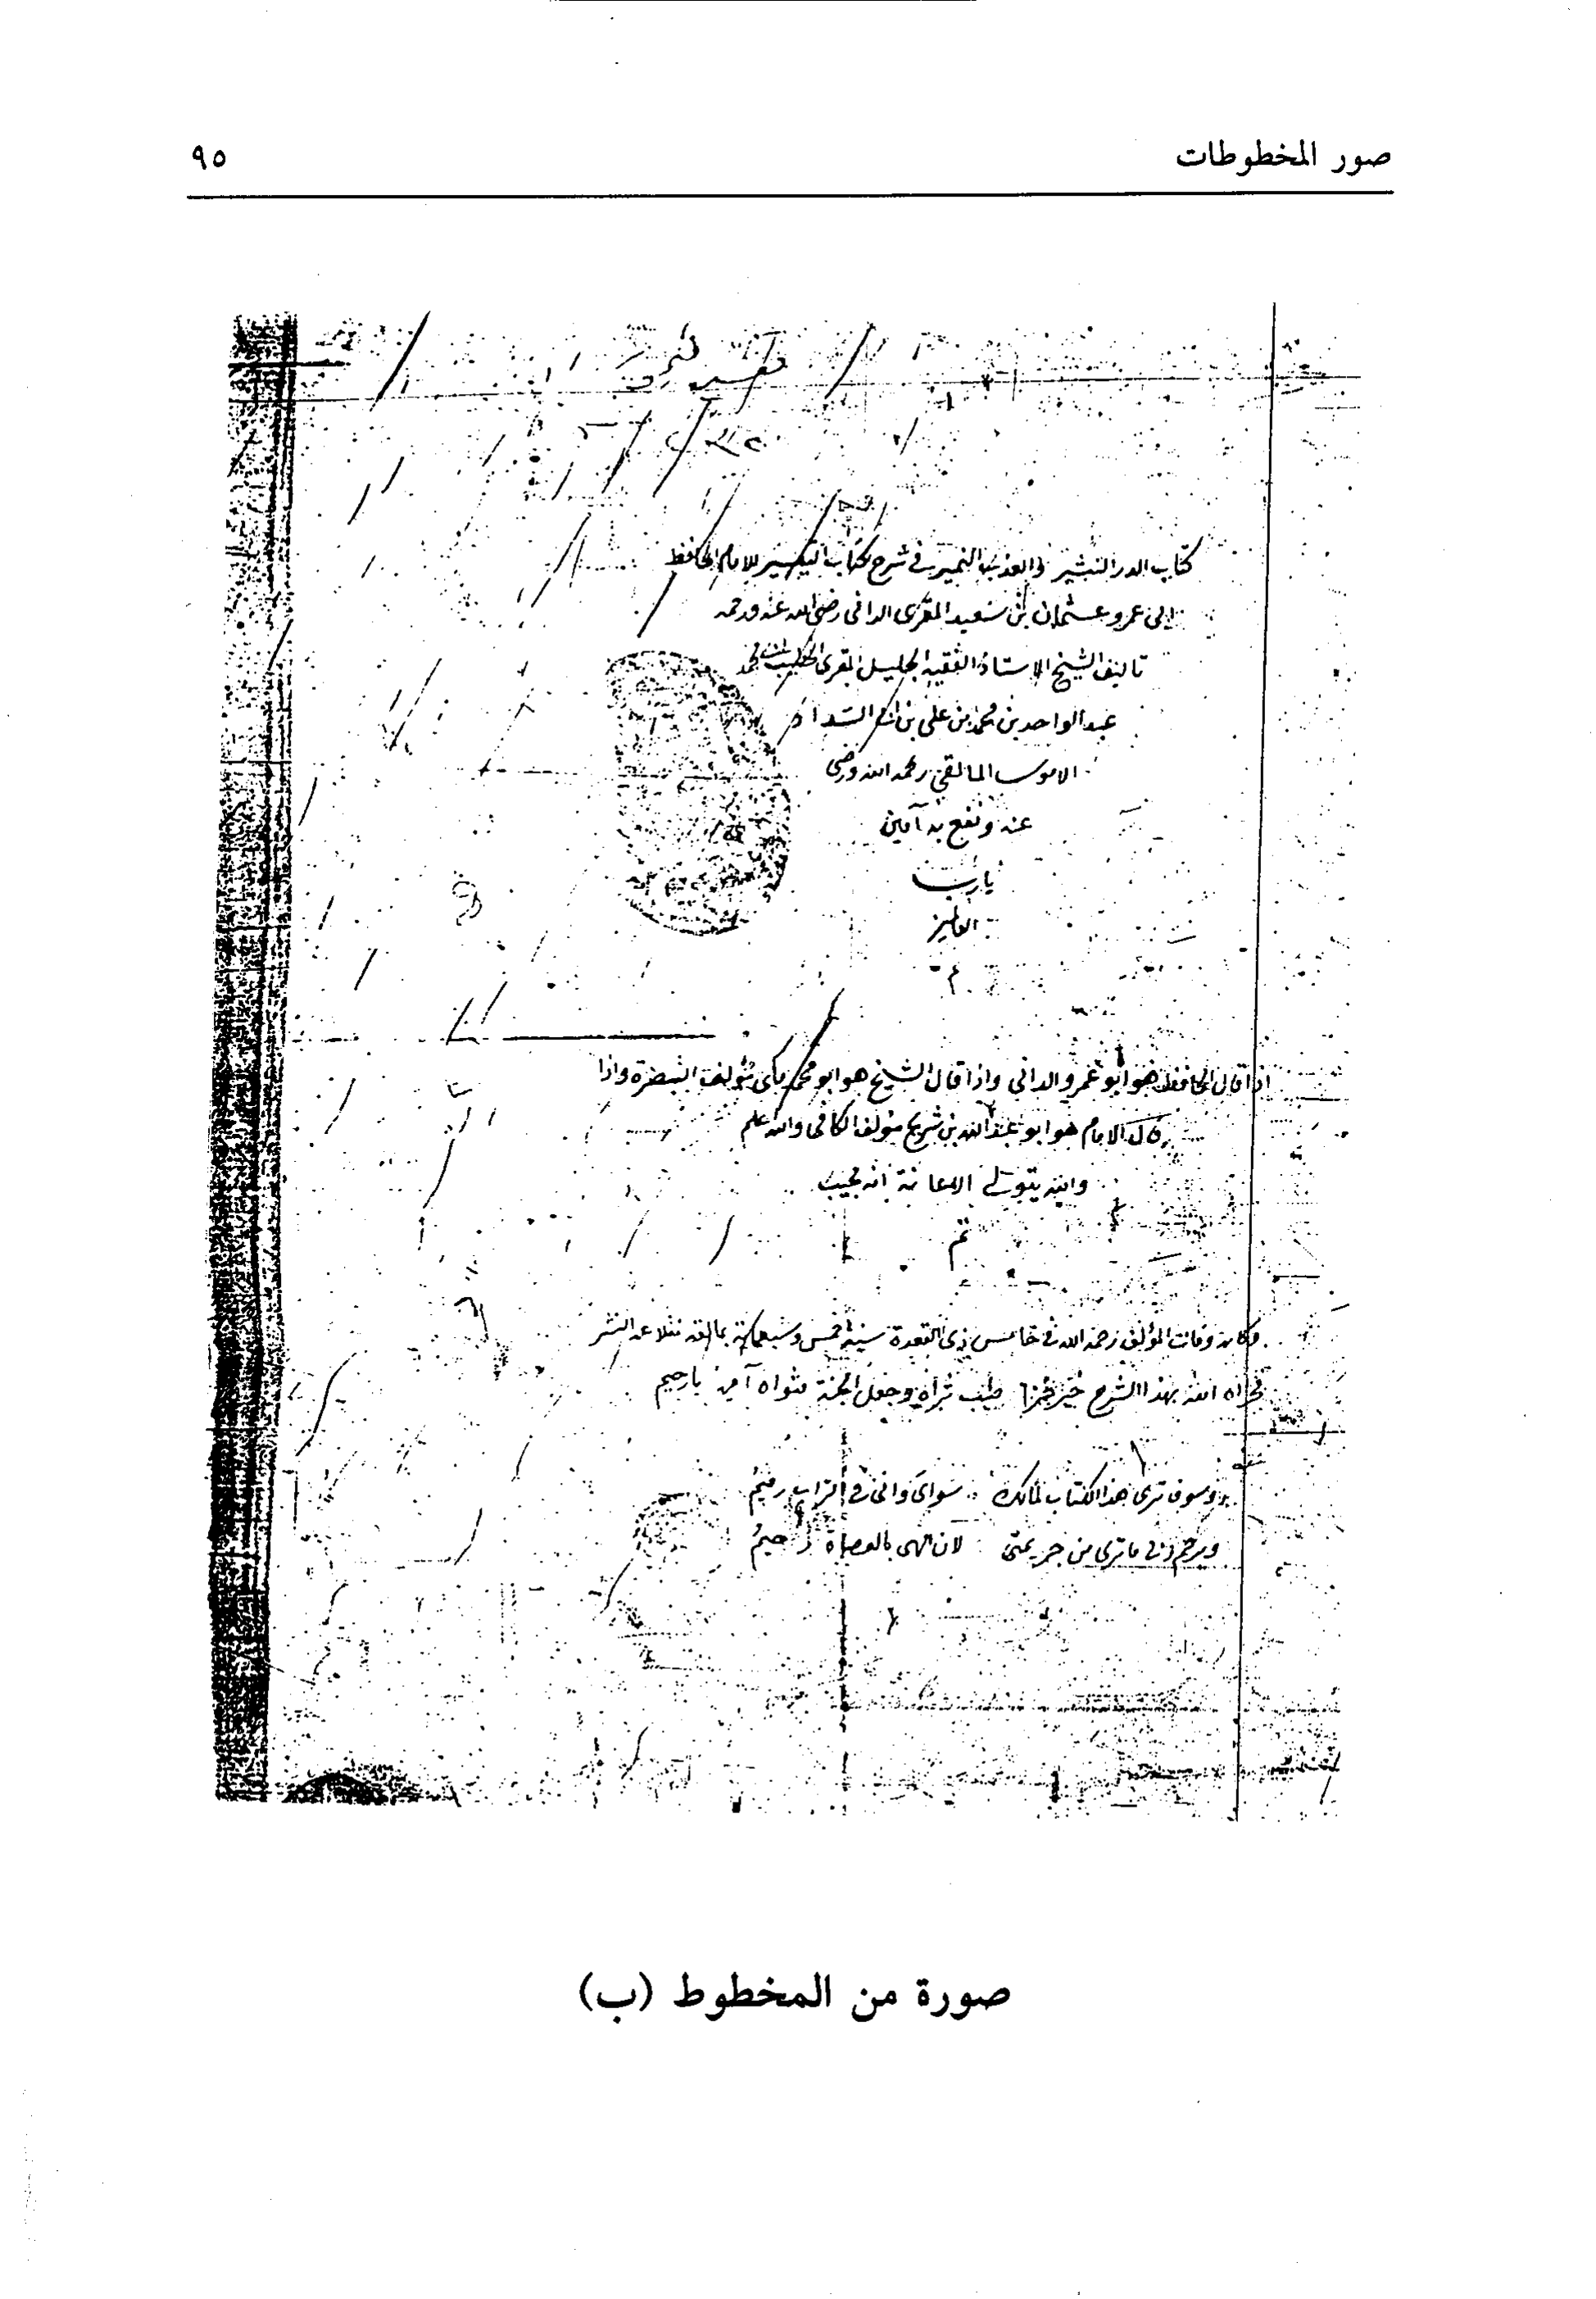 صور المخطوطات
٩٥
كتاب الدر النثير والعذب النمير في شرح كتاب التيسير للامام الحافظ
ابي عمرو عثمان بن سعيد المقرى الداني رضي الله عنه ورحمه
تاليف الشيخ الاستاذ الفقيه الجليل المقرى الخطيب محمد
عبد الواحد بن محمد بن علي بن السداد
الاموي المالقي رحمه الله ورضي
عنه ونفع به آمين
يا رب
اذا قال الحافظ هو ابو عمرو الداني واذا قال الشيخ هو ابو محمد مكي مؤلف التبصرة واذا
قال الامام هو ابو عبد الله بن شريح مؤلف الكافي والله علم
والله يتولى الاعانة انه مجيب
تم
وكانت وفات المؤلف رحمه الله في خامس ذي القعدة سنة خمس وسبعمائة بمالقه نقلا عن النشر
فجزاه الله بهذا الشرح خير طيب ثراه وجعل الجنة مثواه آمين يا رحيم
وسوف ترى هذا الكتاب لمالك سواي واني في التراب رميم
ويرحم ربي ما ترى من جريمتي لان الهي بالعصاة رحيم
صورة من المخطوط (ب)